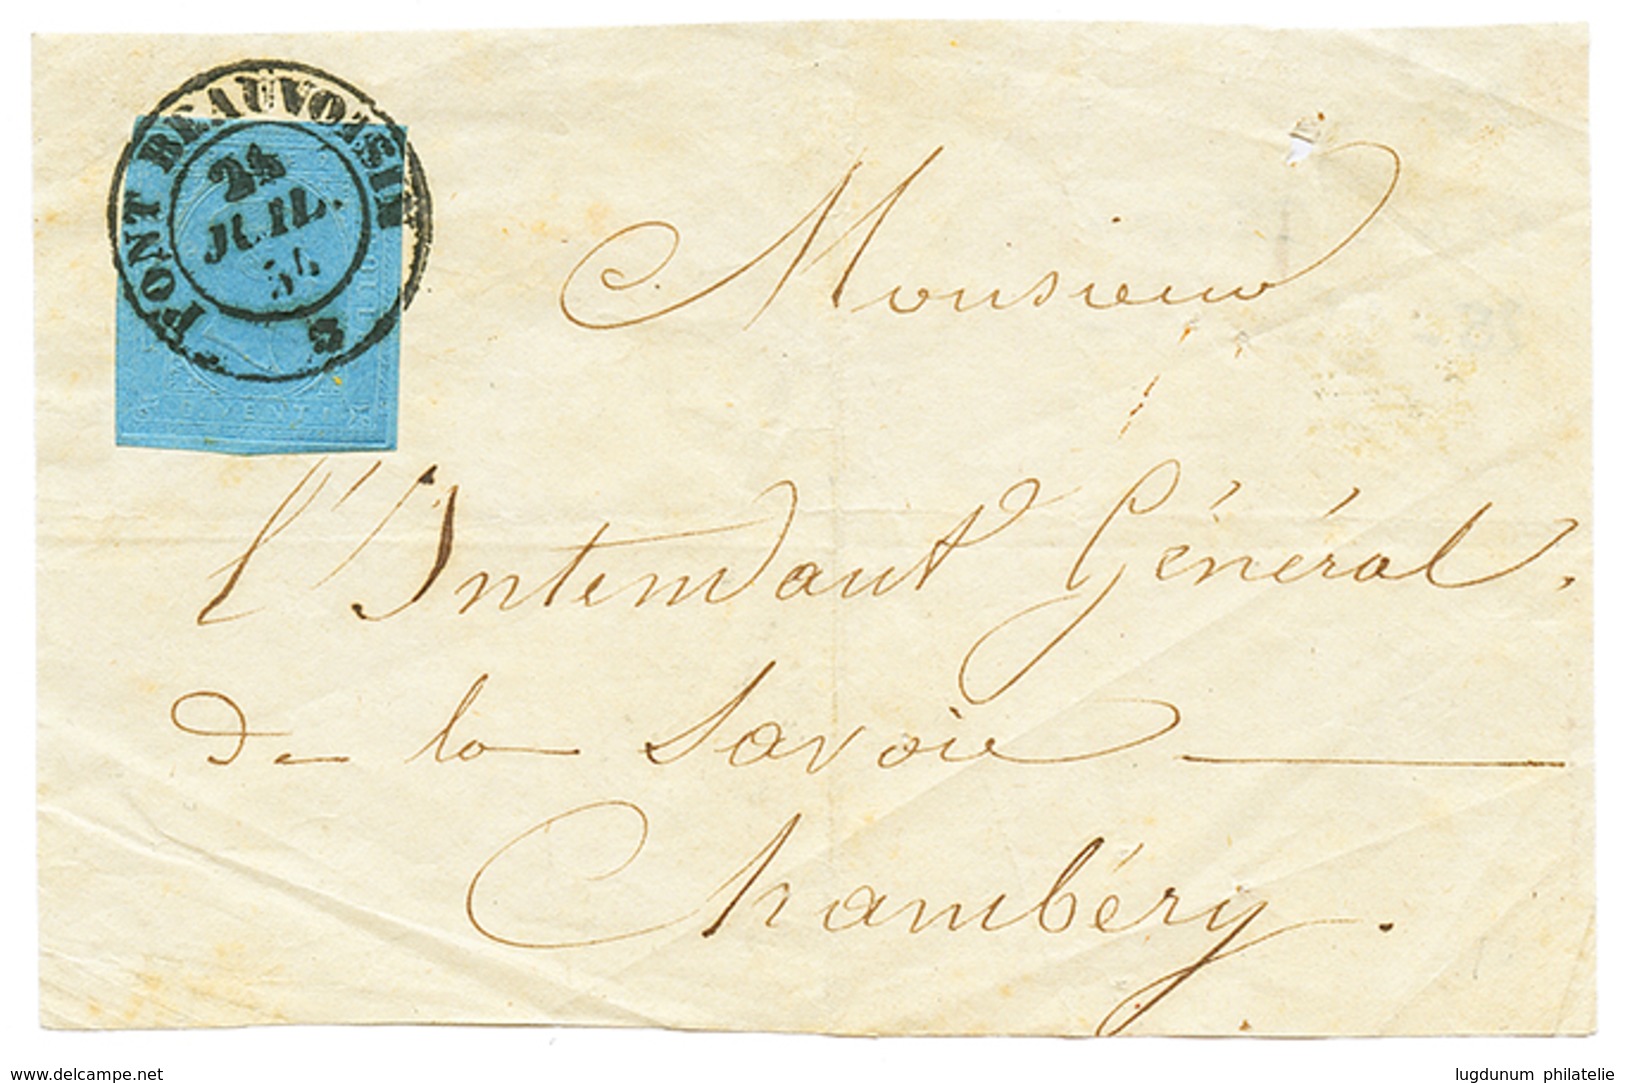 PONT BEAUVOISIN
24
JUIL.
54
C. VENTI
Monsieur
l'Intendant Général
de la Savoie
Chambéry.
delcampe.net
lugdunum philatelie